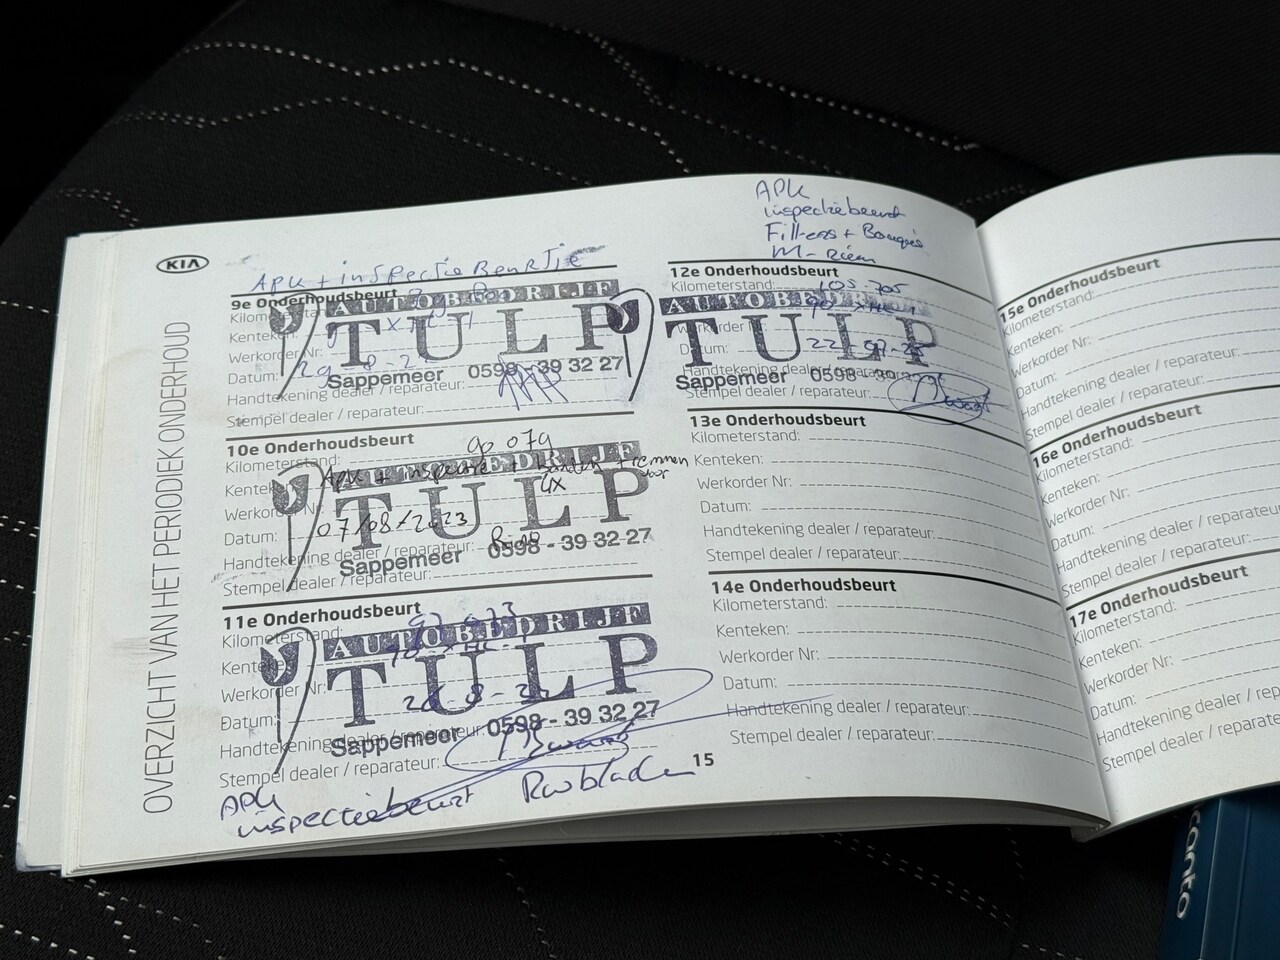 KIA
OVERZICHT VAN HET PERIODIEK ONDERHOUD
APK + inspectie Beurtje
9e Onderhoudsbeurt
Kenteken:
Werkorder Nr:
Datum:
Handtekening dealer / reparateur:
Stempel dealer / reparateur:
AUTOBEDRIJF
TULP
Sappemeer 0598 - 39 32 27
10e Onderhoudsbeurt
90 079
Kilometerstand:
APK + inspectie + banden + remmen
4x voor
Kenteken:
Werkorder
Datum: 07/08/2023
Handtekening dealer / reparateur:
Stempel dealer / reparateur:
TULP
Sappemeer 0598 - 39 32 27
11e Onderhoudsbeurt
Kilometerstand:
Kenteken:
Werkorder Nr:
Datum:
Handtekening dealer / reparateur:
Stempel dealer / reparateur:
AUTOBEDRIJF
TULP
Sappemeer 0598 - 39 32 27
APK
inspectiebeurt
15
APK
inspectiebeurt
Filters + Bougies
M-riem
12e Onderhoudsbeurt
Kilometerstand: 105-705
Werkorder Nr:
Datum:
Handtekening dealer / reparateur:
Stempel dealer / reparateur:
AUTOBEDRIJF
TULP
Sappemeer 0598 - 39
13e Onderhoudsbeurt
Kilometerstand:
Kenteken:
Werkorder Nr:
Datum:
Handtekening dealer / reparateur:
Stempel dealer / reparateur:
14e Onderhoudsbeurt
Kilometerstand:
Kenteken:
Werkorder Nr:
Datum:
Handtekening dealer / reparateur:
Stempel dealer / reparateur:
15e Onderhoudsbeurt
Kilometerstand:
Kenteken:
Werkorder Nr:
Datum:
Handtekening dealer / reparateur:
Stempel dealer / reparateur:
16e Onderhoudsbeurt
Kilometerstand:
Kenteken:
Werkorder Nr:
Datum:
Handtekening dealer / reparateur:
Stempel dealer / reparateur:
17e Onderhoudsbeurt
Kilometerstand:
Kenteken:
Werkorder Nr:
Datum:
Handtekening dealer / rep
Stempel dealer / reparateur:
canto